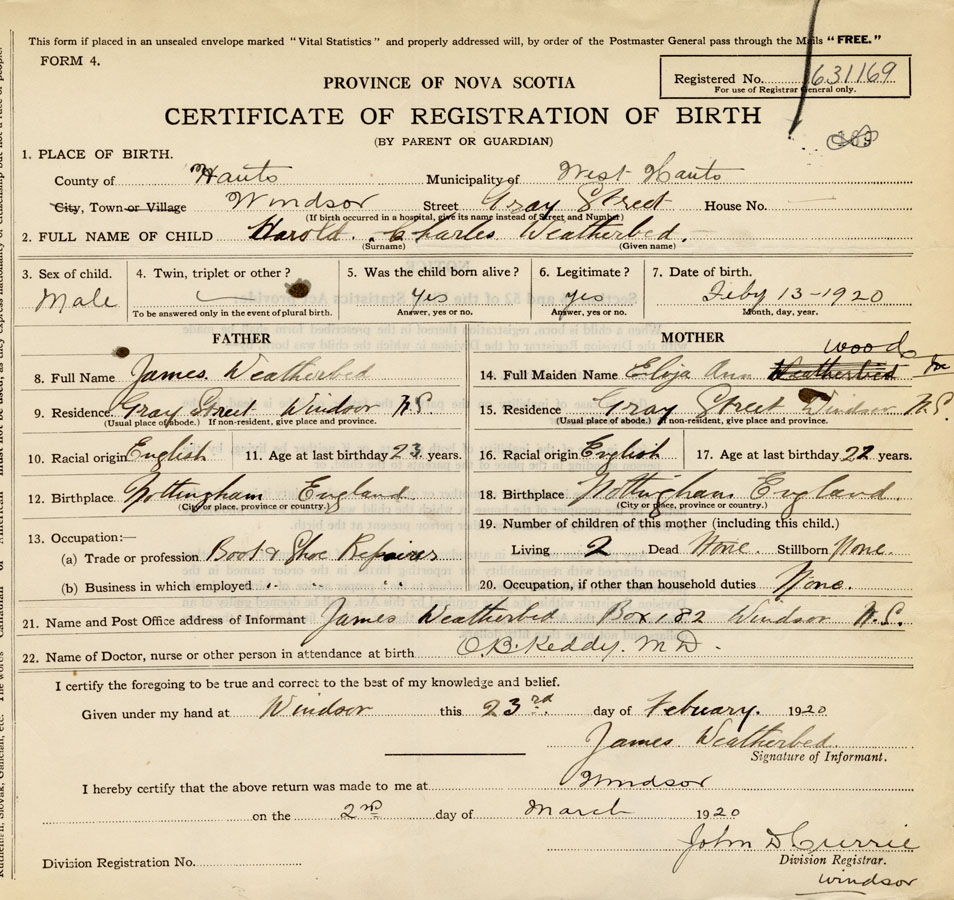 This form if placed in an unsealed envelope marked "Vital Statistics" and properly addressed will, by order of the Postmaster General pass through the Mails "FREE."
FORM 4.
Registered No. 631169
For use of Registrar General only.
PROVINCE OF NOVA SCOTIA
CERTIFICATE OF REGISTRATION OF BIRTH
(BY PARENT OR GUARDIAN)
1. PLACE OF BIRTH.
County of Hants Municipality of West Hants
City, Town or Village Windsor Street Gray Street House No.
(If birth occurred in a hospital, give its name instead of Street and Number)
2. FULL NAME OF CHILD Harold Charles Weatherbed.
(Surname) (Given name)
3. Sex of child. 4. Twin, triplet or other? 5. Was the child born alive? 6. Legitimate? 7. Date of birth.
Male Yes yes Feby 13-1920
To be answered only in the event of plural birth. Answer, yes or no. Answer, yes or no. Month, day, year.
FATHER
8. Full Name James Weatherbed
9. Residence Gray Street Windsor N.S.
(Usual place of abode.) If non-resident, give place and province.
10. Racial origin English 11. Age at last birthday 23 years.
12. Birthplace Nottingham England
(City or place, province or country.)
13. Occupation:—
(a) Trade or profession Boot & Shoe Repairer
(b) Business in which employed " " "
MOTHER
wood
14. Full Maiden Name Eliza Ann Weatherbed
15. Residence Gray Street Windsor N.S.
(Usual place of abode.) If non-resident, give place and province.
16. Racial origin English 17. Age at last birthday 22 years.
18. Birthplace Nottingham England
(City or place, province or country.)
19. Number of children of this mother (including this child.)
Living 2 Dead None. Stillborn None.
20. Occupation, if other than household duties None.
21. Name and Post Office address of Informant James Weatherbed Box 182 Windsor N.S.
22. Name of Doctor, nurse or other person in attendance at birth O.B. Keddy. M D.
I certify the foregoing to be true and correct to the best of my knowledge and belief.
Given under my hand at Windsor this 23rd day of February. 1920
James Weatherbed
Signature of Informant.
I hereby certify that the above return was made to me at Windsor
on the 2nd day of March 1920
John D Currie
Division Registrar.
Division Registration No.
Windsor